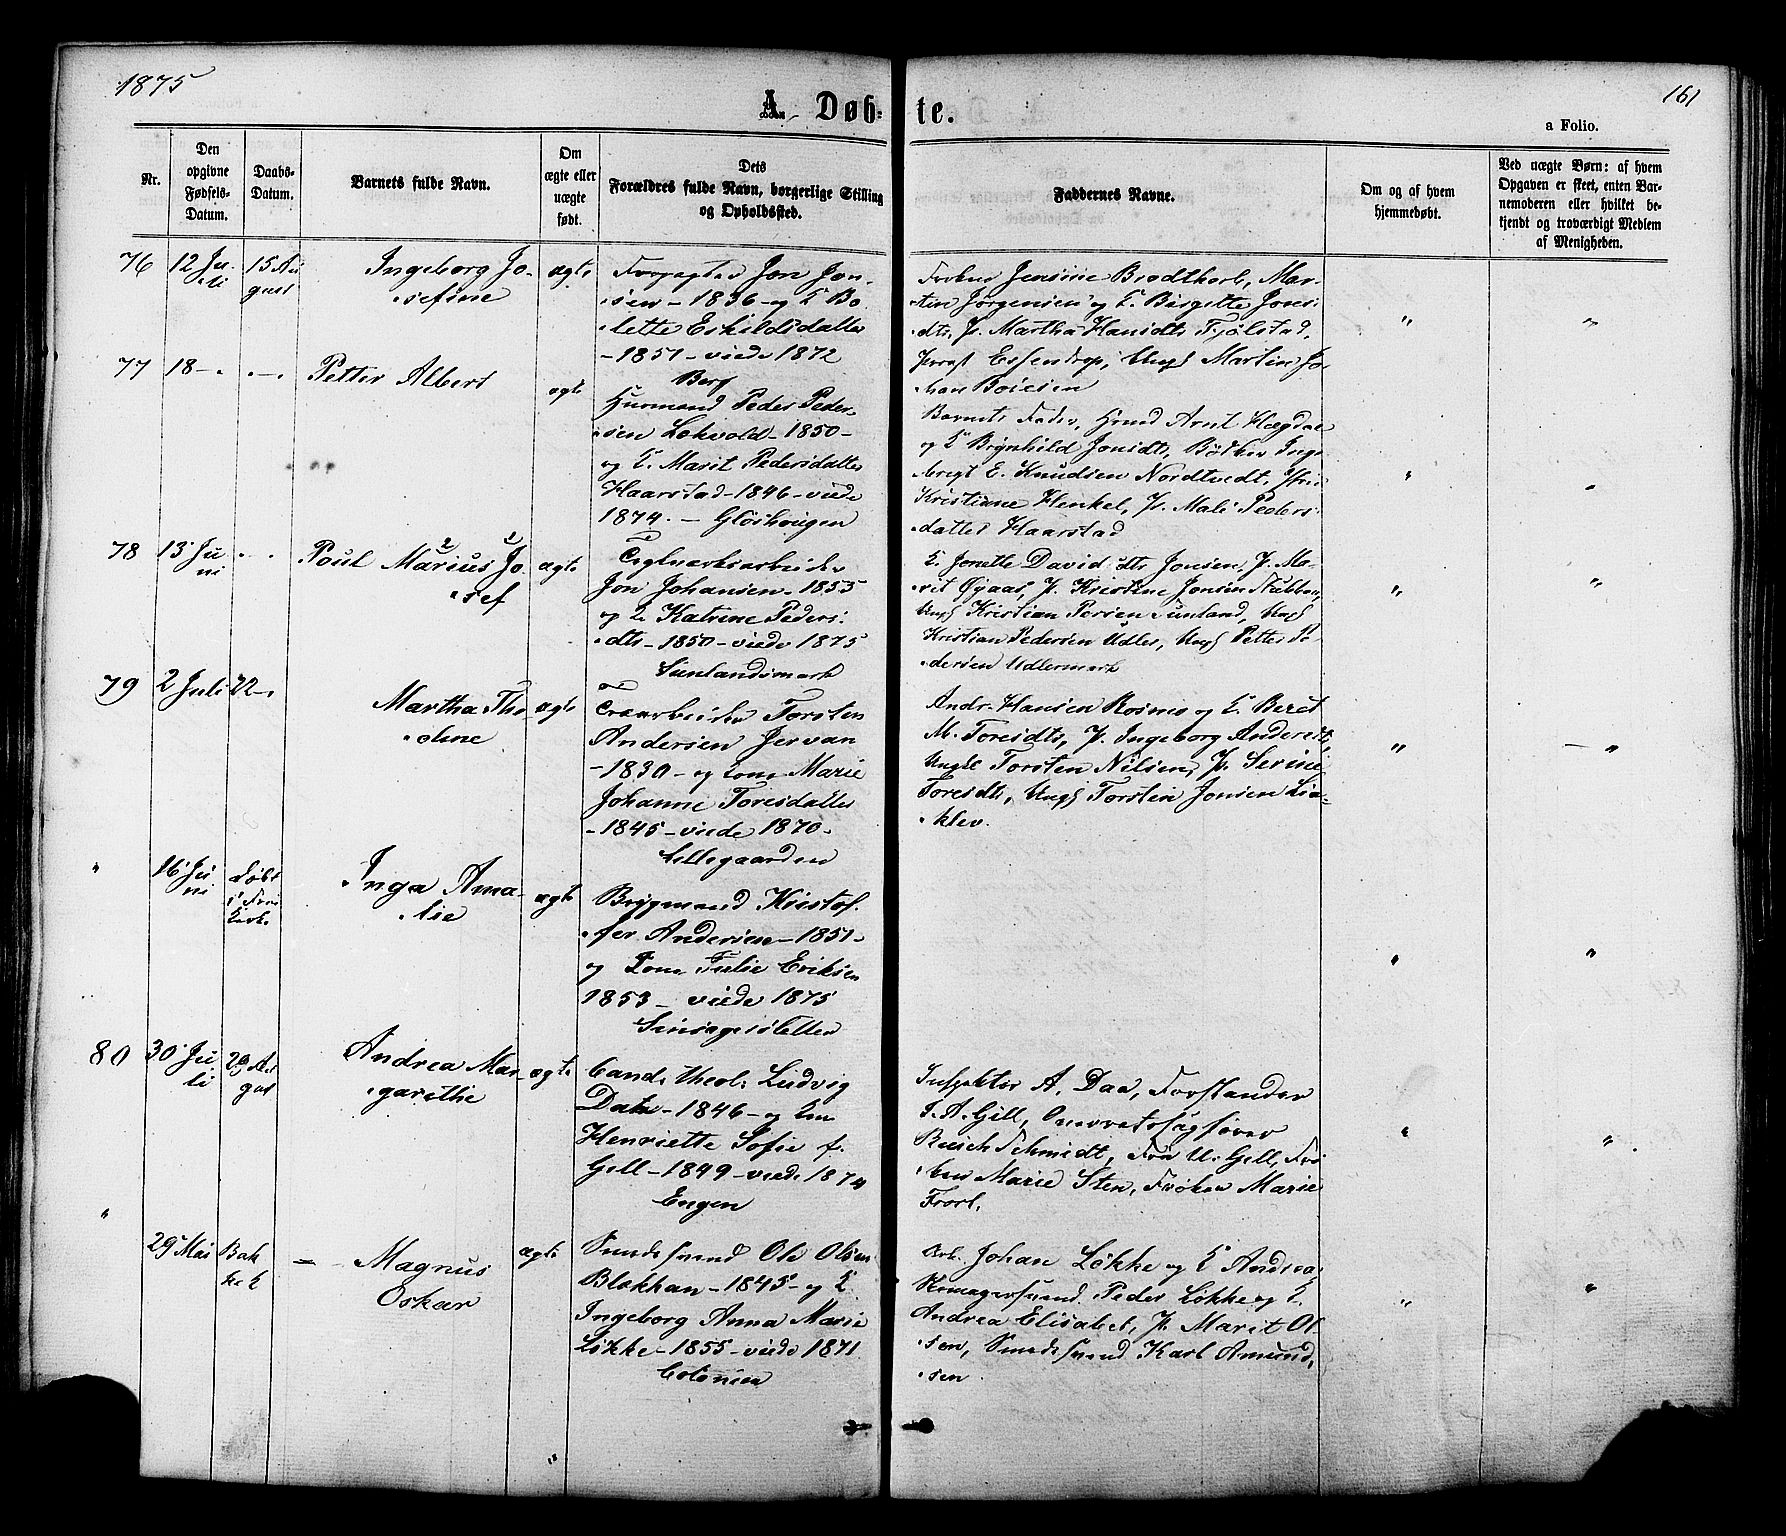 1875
161
A. Døbte.
a Folio.
Nr.
Den opgivne Fødsels-Datum.
Daabs-Datum.
Barnets fulde Navn.
Om ægte eller uægte født.
Dets Forældres fulde Navn, borgerlige Stilling og Opholdssted.
Faddernes Navne.
Om og af hvem hjemmedøbt.
Ved uægte Børn: af hvem Opgaven er skeet, enten Barnemoderen eller hvilket bekjendt og troværdigt Medlem af Menigheden.
76
12 Ju-
li
15 Au
gust
Ingeborg Jo-
sefine
ægte
Forpagter Jon Jon-
sen - 1836 - og E Bo
lette Eskildsdatter
- 1851 - viede 1872
Berg
Frøken Jensine Brodtkorb, Mar-
tin Jørgensen og E. Birgitte Jons-
dtr, P. Martha Hansdtr Fjølstad,
Essendrop, Ungk Martin Jo-
han Boiesen
77
18 -
Petter Albert
ægte
Husmand Peder Peder-
sen Løkvold - 1850 -
og E. Marit Pedersdatter
Haarstad - 1846 - viede
1874. - Gløshaugen
Barnets Fader, Hmd Arnt Hægdal
og E Brynhild Jonsdtr, Bødker Inge
brigt E. Knudsen Nordtvedt,
Kristiane Henkel, P. Mali Peders
datter Haarstad
78
13 Ju
ni
Poul Marius Jo-
sef
ægte
Teglverksarbeider
Jon Johansen - 1853
og E. Katrine Peders-
dtr - 1850 - viede 1875
Sunlandsmark
E. Jonette Davidsdtr Jonsen, P. Ma-
rit Øyaas, P. Kristine Jonsen Stubban,
Ungk Kristian Persen Sunland, Ungk
Kristian Pedersen Udler, Ungk Petter Pe-
dersen Udlermark
79
2 Juli
22 -
Martha Tho-
oline
ægte
Torsten
Andersen Jervan
- 1830 - og Kone Marie
Johanne Toresdatter
- 1845 - viede 1870 -
Lillegaarden
Andr. Hansen Rosmo og E. Beret
M. Toresdtr, P. Ingeborg Andersdtr,
Ungk Torsten Nilsen, P. Serine
Toresdtr, Ungk Torstin Jonsen Lia-
klev.
"
16 Ju
ni
døbt
i Frue
Kirke
Inga Ama-
lie
ægte
Brygmand Kristof-
fer Andersen - 1851 -
og Kone Julie Eriksen
1853 - viede 1875
80
30 Ju
li
29 Au
gust
Andrea Mar-
garethe
ægte
Cand. theol. Ludvig
Daae - 1846 - og Kone
Henriette Sofie f.
Gill - 1849 - viede 1874
Engen
Inspektør A. Daa, Forstander
J. A. Gill, Overretssagfører
Busch Schmidt, Fru U. Gill, Frø
ken Marie Sten, Frøken Marie
"
29 Mai
Bak
ke K
Magnus
Oskar
ægte
Smedesvend Ole Olsen
Blekkan - 1845 - og E.
Ingeborg Anna Marie
Løkke - 1855 - viede 1871
Colonien
Arb. Johan Løkke og E Andrea,
Skomagersvend Peder Løkke og E.
Andrea Elisabet, P. Marit Ol-
sen, Smedesvend Karl Amund-
sen.